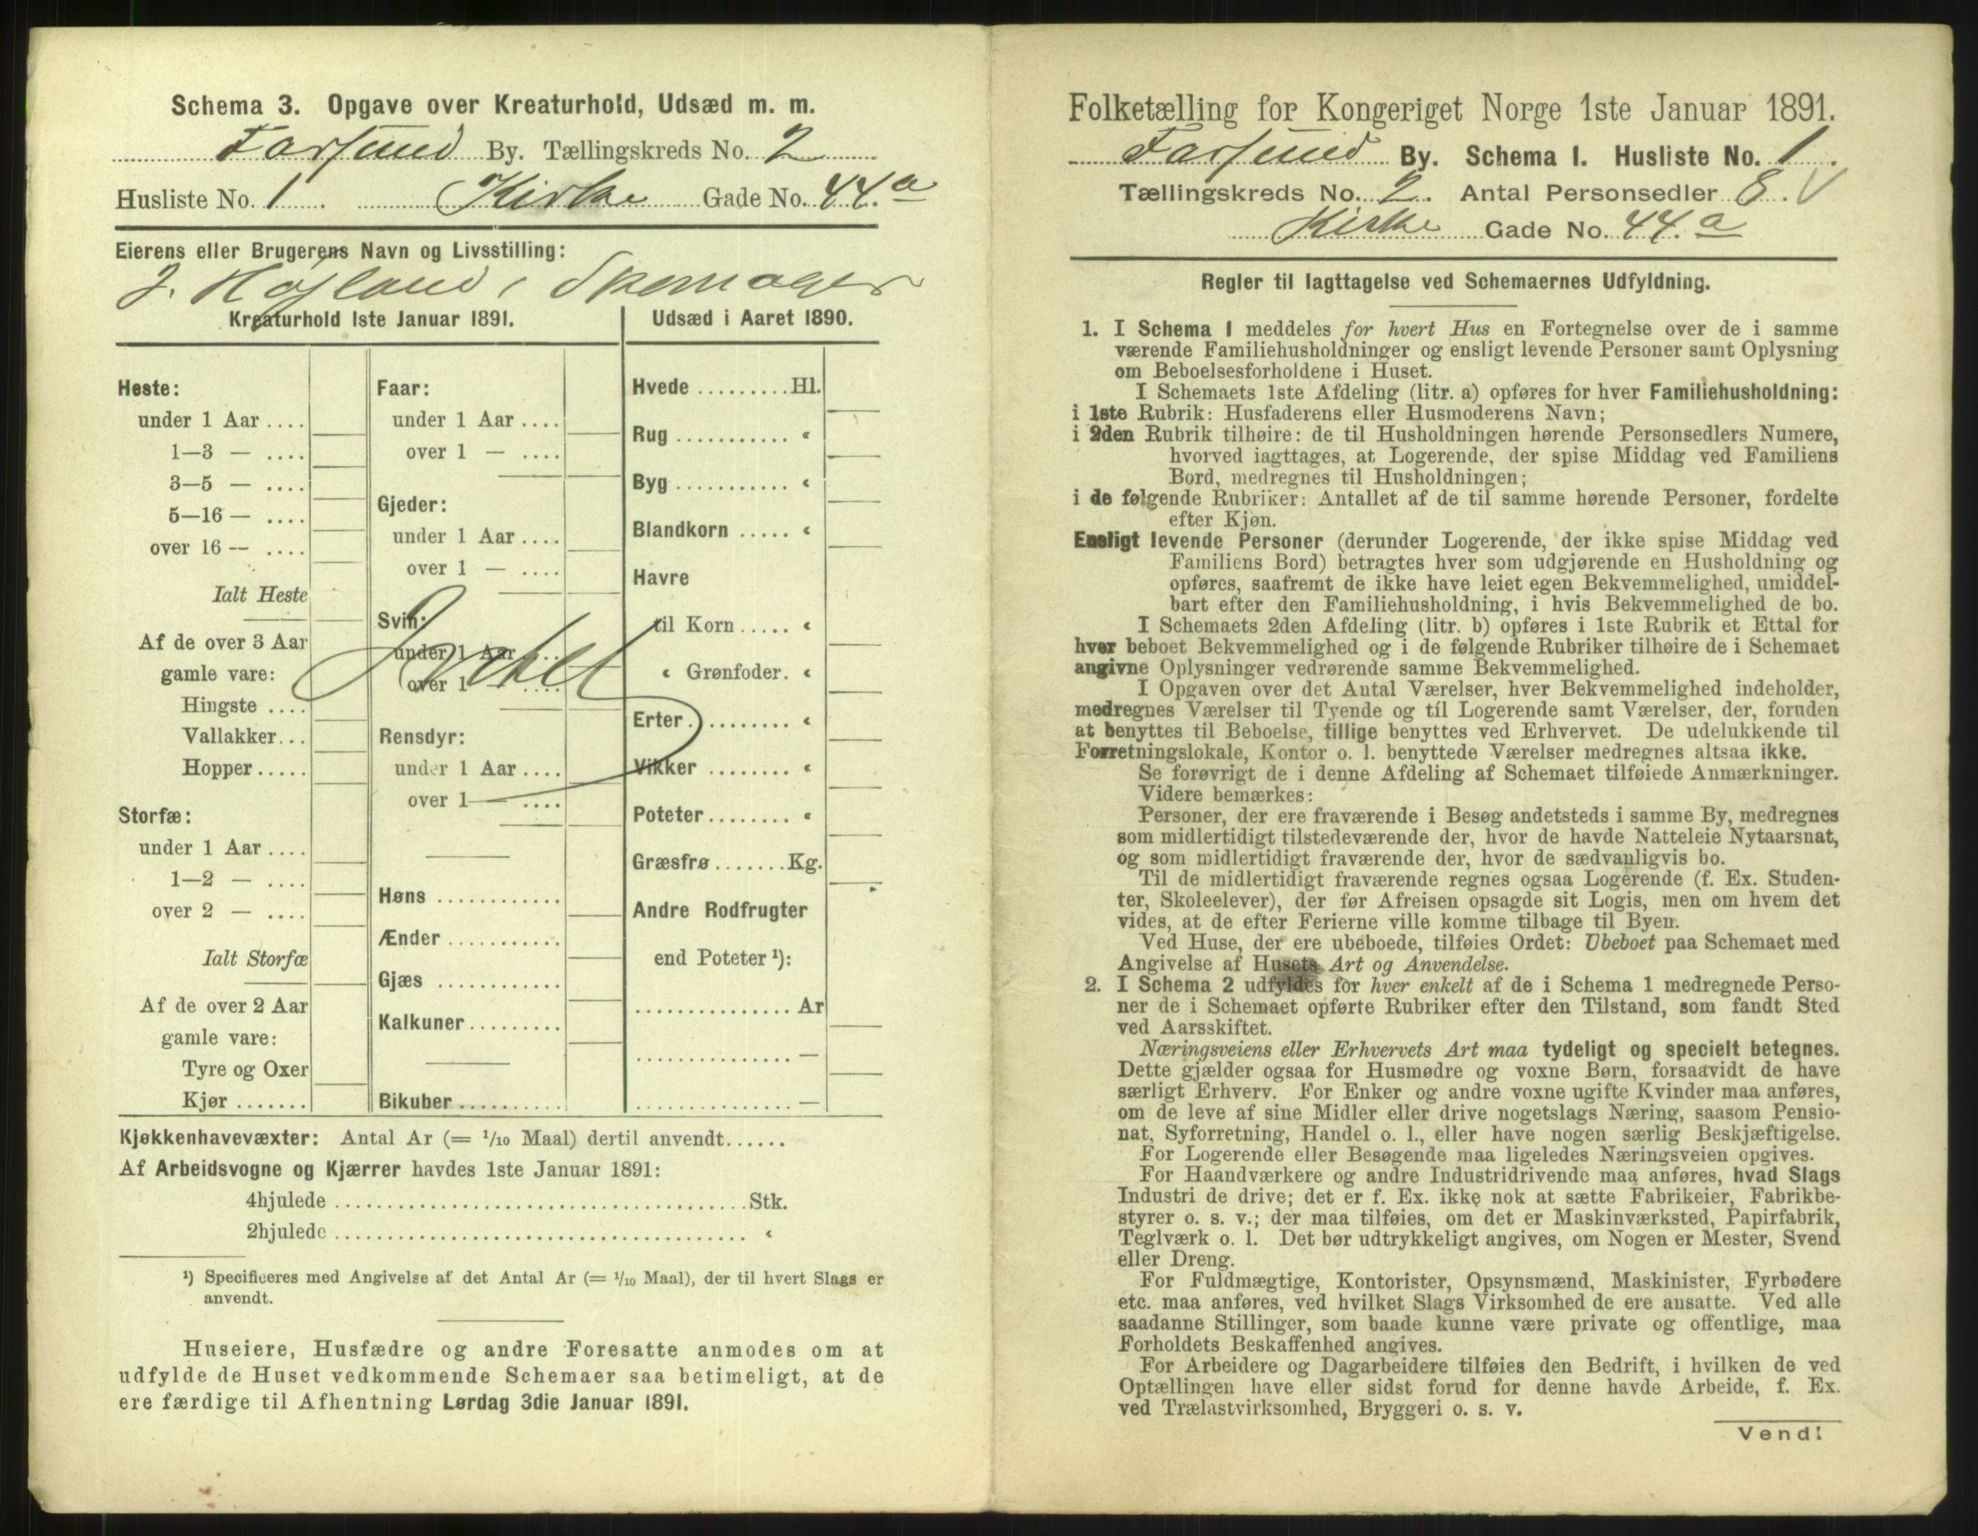 Schema 3. Opgave over Kreaturhold, Udsæd m. m.
Farsund By. Tællingskreds No. 2
Husliste No. 1. Kirke Gade No. 44.a
Eierens eller Brugerens Navn og Livsstilling:
J. Høyland, Skomager
Kreaturhold 1ste Januar 1891.
Heste:
under 1 Aar ....
1—3 — ....
3—5 — ....
5—16 — ....
over 16 — ....
Ialt Heste
Af de over 3 Aar
gamle vare:
Hingste ....
Vallakker...
Hopper.....
Storfæ:
under 1 Aar ....
1—2 — ....
over 2 — ....
Ialt Storfæ
Af de over 2 Aar
gamle vare:
Tyre og Oxer
Kjør .......
Faar:
under 1 Aar ....
over 1 — ....
Gjeder:
under 1 Aar ....
over 1 — ....
Svin:
under 1 Aar ....
over 1 — ....
Rensdyr:
under 1 Aar ....
over 1 — ....
Høns ............
Ænder ...........
Gjæs ............
Kalkuner.........
Bikuber..........
Udsæd i Aaret 1890.
Hvede .........Hl.
Rug ........... «
Byg ........... «
Blandkorn ..... «
Havre
til Korn ..... «
« Grønfoder. «
Erter.......... «
Vikker ........ «
Poteter........ «
Græsfrø .......Kg.
Andre Rodfrugter
end Poteter ¹):
............... Ar
............... —
............... —
Kjøkkenhavevæxter: Antal Ar (= 1/10 Maal) dertil anvendt......
Af Arbeidsvogne og Kjærrer havdes 1ste Januar 1891:
4hjulede ........................................Stk.
2hjulede ........................................ «
¹) Specificeres med Angivelse af det Antal Ar (= 1/10 Maal), der til hvert Slags er
anvendt.
Huseiere, Husfædre og andre Foresatte anmodes om at
udfylde de Huset vedkommende Schemaer saa betimeligt, at de
ere færdige til Afhentning Lørdag 3die Januar 1891.
Folketælling for Kongeriget Norge 1ste Januar 1891.
Farsund By. Schema I. Husliste No. 1.
Tællingskreds No. 2. Antal Personsedler 8. V
Kirke Gade No. 44.a
Regler til Iagttagelse ved Schemaernes Udfyldning.
1. I Schema 1 meddeles for hvert Hus en Fortegnelse over de i samme
værende Familiehusholdninger og ensligt levende Personer samt Oplysning
om Beboelsesforholdene i Huset.
I Schemaets 1ste Afdeling (litr. a) opføres for hver Familiehusholdning:
i 1ste Rubrik: Husfaderens eller Husmoderens Navn;
i 2den Rubrik tilhøire: de til Husholdningen hørende Personsedlers Numere,
hvorved iagttages, at Logerende, der spise Middag ved Familiens
Bord, medregnes til Husholdningen;
i de følgende Rubriker: Antallet af de til samme hørende Personer, fordelte
efter Kjøn.
Ensligt levende Personer (derunder Logerende, der ikke spise Middag ved
Familiens Bord) betragtes hver som udgjørende en Husholdning og
opføres, saafremt de ikke have leiet egen Bekvemmelighed, umiddel-
bart efter den Familiehusholdning, i hvis Bekvemmelighed de bo.
I Schemaets 2den Afdeling (litr. b) opføres i 1ste Rubrik et Ettal for
hver beboet Bekvemmelighed og i de følgende Rubriker tilhøire de i Schemaet
angivne Oplysninger vedrørende samme Bekvemmelighed.
I Opgaven over det Antal Værelser, hver Bekvemmelighed indeholder,
medregnes Værelser til Tyende og til Logerende samt Værelser, der, foruden
at benyttes til Beboelse, tillige benyttes ved Erhvervet. De udelukkende til
Forretningslokale, Kontor o. l. benyttede Værelser medregnes altsaa ikke.
Se forøvrigt de i denne Afdeling af Schemaet tilføiede Anmærkninger.
Videre bemærkes:
Personer, der ere fraværende i Besøg andetsteds i samme By, medregnes
som midlertidigt tilstedeværende der, hvor de havde Natteleie Nytaarsnat,
og som midlertidigt fraværende der, hvor de sædvanligvis bo.
Til de midlertidigt fraværende regnes ogsaa Logerende (f. Ex. Studen-
ter, Skoleelever), der før Afreisen opsagde sit Logis, men om hvem det
vides, at de efter Ferierne ville komme tilbage til Byen.
Ved Huse, der ere ubeboede, tilføies Ordet: Ubeboet paa Schemaet med
Angivelse af Husets Art og Anvendelse.
2. I Schema 2 udfyldes for hver enkelt af de i Schema 1 medregnede Perso-
ner de i Schemaet opførte Rubriker efter den Tilstand, som fandt Sted
ved Aarsskiftet.
Næringsveiens eller Erhvervets Art maa tydeligt og specielt betegnes.
Dette gjælder ogsaa for Husmødre og voxne Børn, forsaavidt de have
særligt Erhverv. For Enker og andre voxne ugifte Kvinder maa anføres,
om de leve af sine Midler eller drive nogetslags Næring, saasom Pensio-
nat, Syforretning, Handel o. l., eller have nogen særlig Beskjæftigelse.
For Logerende eller Besøgende maa ligeledes Næringsveien opgives.
For Haandværkere og andre Industridrivende maa anføres, hvad Slags
Industri de drive; det er f. Ex. ikke nok at sætte Fabrikeier, Fabrikbe-
styrer o. s. v.; der maa tilføies, om det er Maskinværksted, Papirfabrik,
Teglværk o. l. Det bør udtrykkeligt angives, om Nogen er Mester, Svend
eller Dreng.
For Fuldmægtige, Kontorister, Opsynsmænd, Maskinister, Fyrbødere
etc. maa anføres, ved hvilket Slags Virksomhed de ere ansatte. Ved alle
saadanne Stillinger, som baade kunne være private og offentlige, maa
Forholdets Beskaffenhed angives.
For Arbeidere og Dagarbeidere tilføies den Bedrift, i hvilken de ved
Optællingen have eller sidst forud for denne havde Arbeide, f. Ex.
ved Trælastvirksomhed, Bryggeri o. s. v.
Vend!